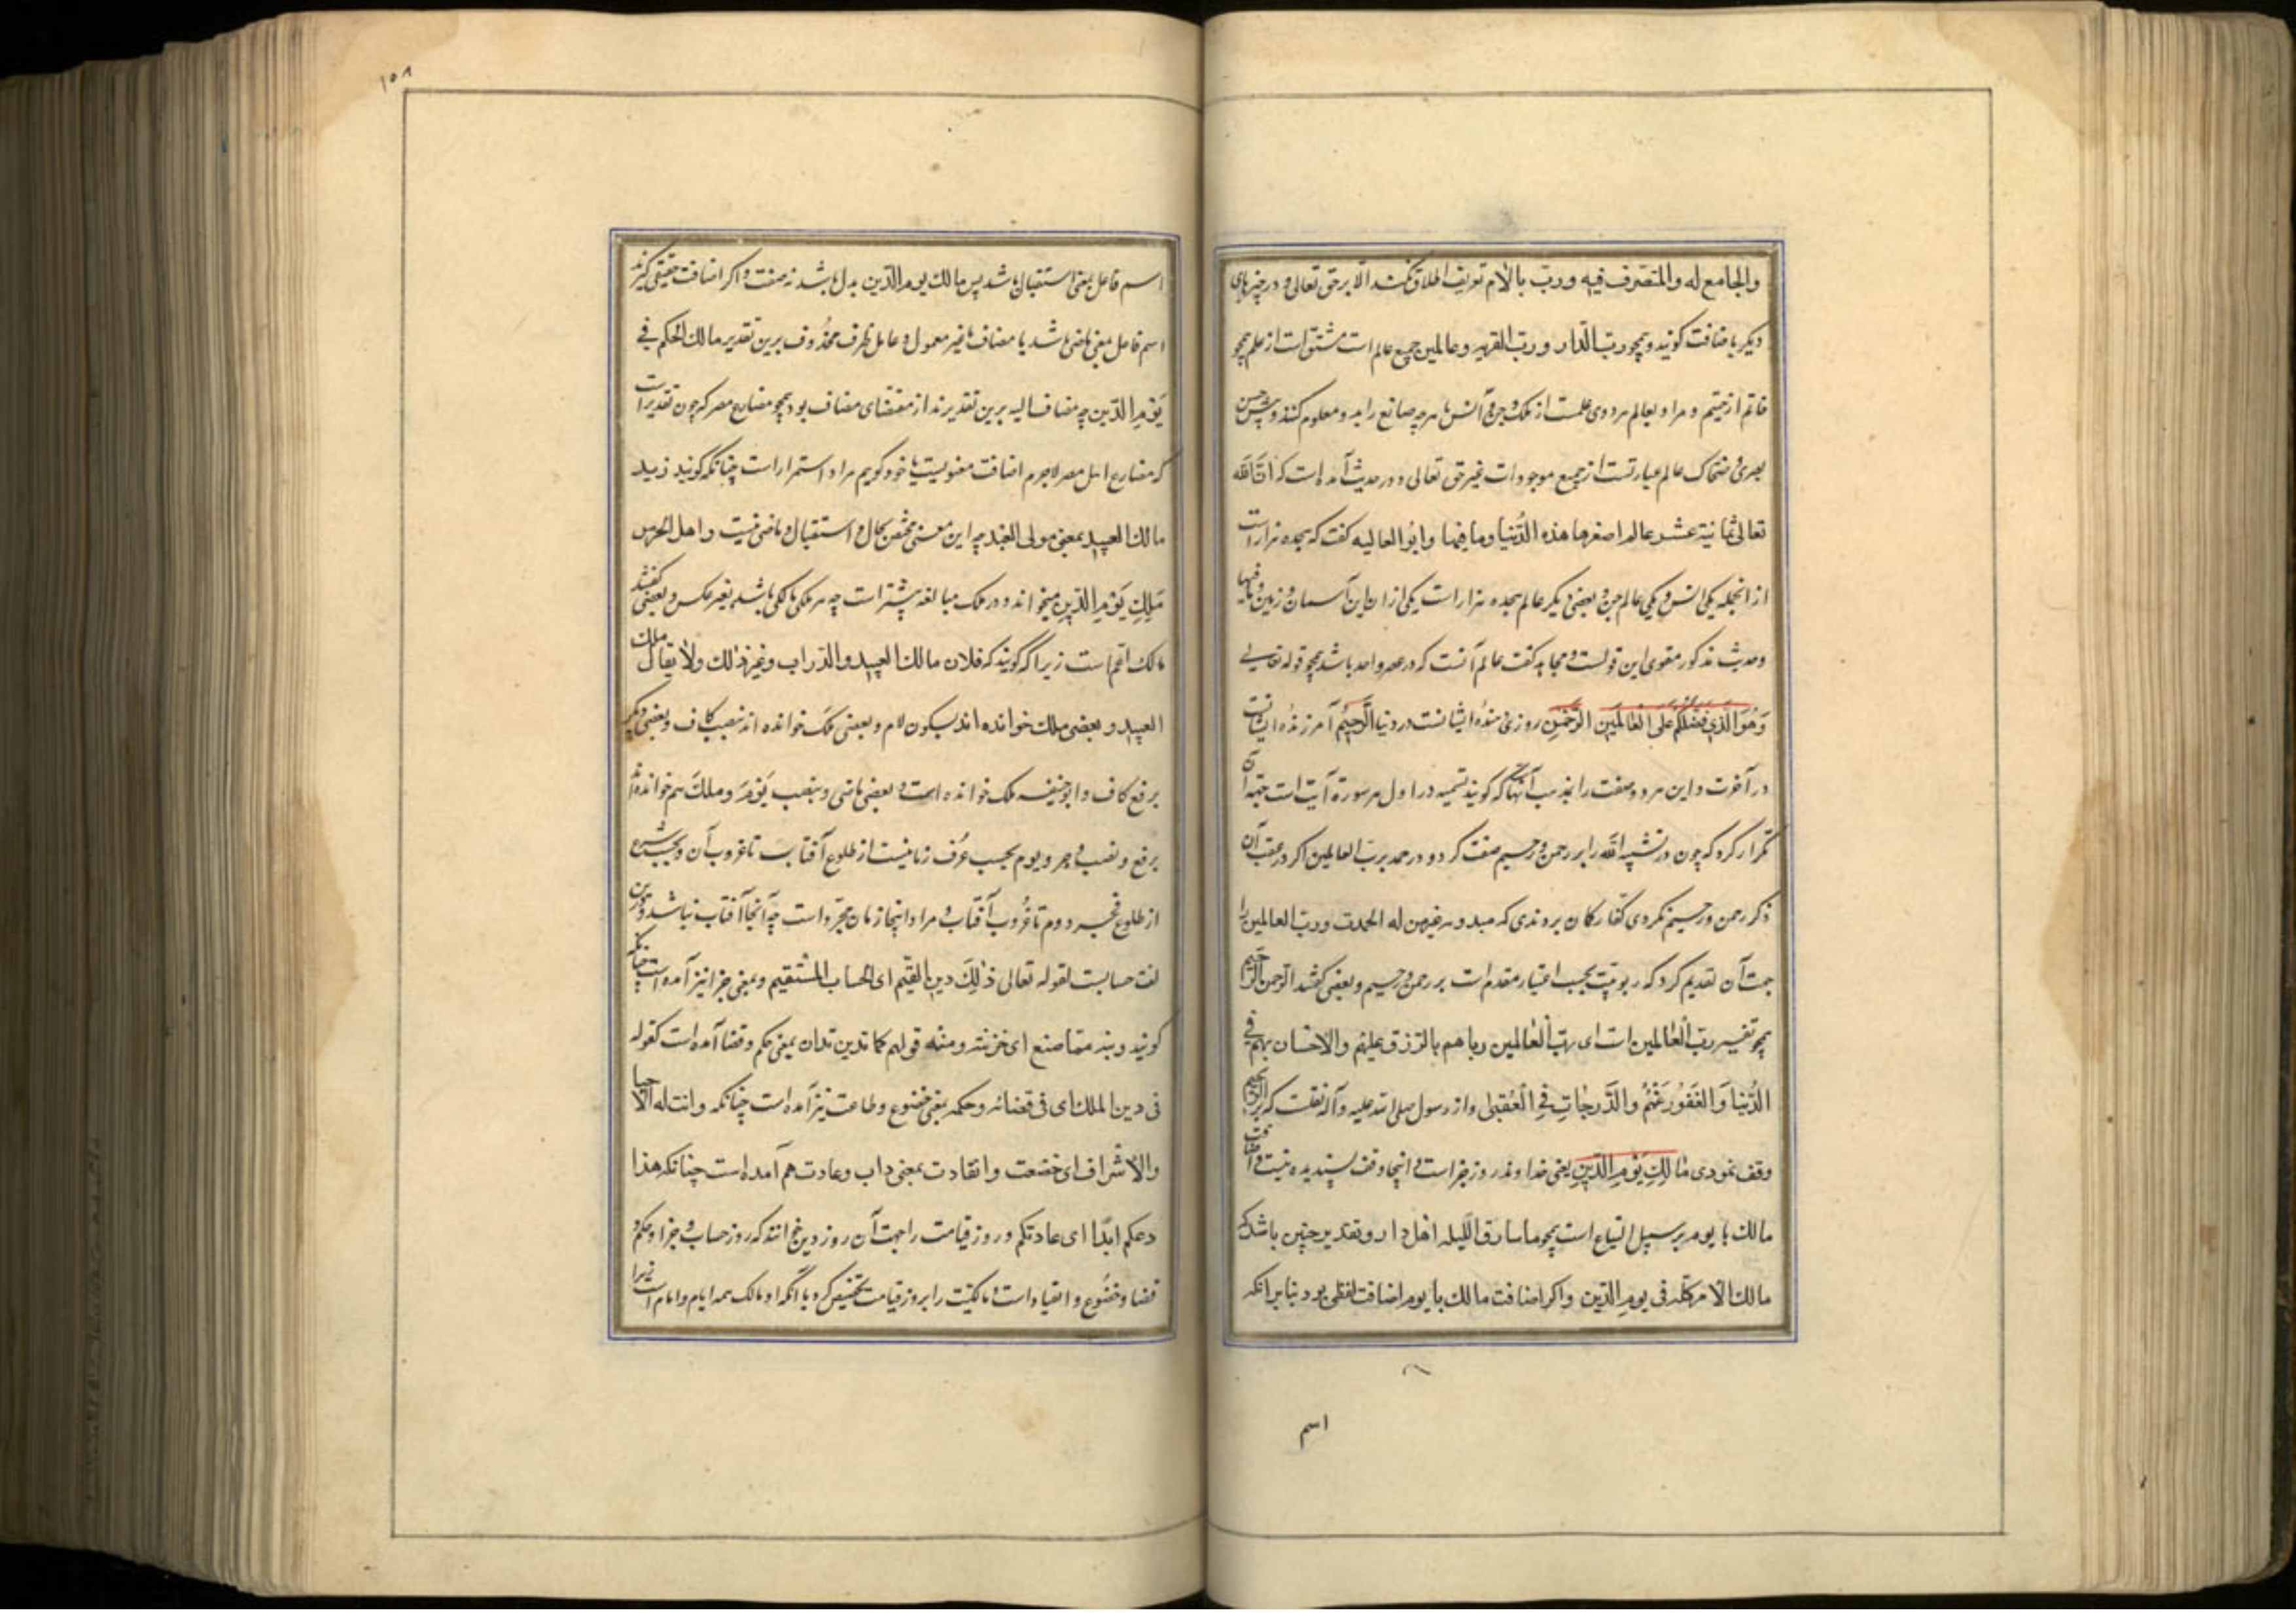 والجامع له والمتصرف فیه ورب بالام تعریف اطلاق نکنند الا بر حق تعالی و در چیزهای
دیکر باضافت کویند و همچو رب الدار و رب القریه و عالمین جمع عالم است مشتق است از علم همچو
خاتم از ختم و مراد بعالم هر ذوی علمست از ملک و جن و انس یا هرچه صانع را بدو معلوم کنند و پیش حسن
بصری و ضحاک عالم عبارتست از جمیع موجودات غیر حق تعالی و در حدیث آمده است که ان الله
تعالی ثمانیة عشر عالم اصغرها هذه الدنیا وما فیها و ابو العالیه کفت که هجده هزار است
از انجمله یکی انس و یکی عالم جن و بعضی دیکر عالم هجده هزار است یکی از ان این آسمان و زمین و ما فیها
وحدیث مذکور مقوی این قولست و مجاهد کفت عالم آنست که در عصر واحد باشد همچو قوله تعالی
وَهُوَ الَّذی فَضَّلَكُمْ عَلَی الْعَالَمینَ الرَّحْمٰنِ روزی دهنده ایشانست در دنیا الرَّحیمُ آمرزنده ایشانست
در آخرت و این هر دو صفت را بمذهب آنها که کویند تسمیه در اول هر سورة آیت است جهة آن
تکرار کرد که چون در تسمیه الله را بر رحمن و رحیم صفت کرد و در حمد برب العالمین اکر در عقب آن
ذکر رحمن و رحیم نکردی کفار کمان بردندی که غیر من له الحمدست و رب العالمین را
جهت آن تقدیم کرد که ربوبیت بحسب اعتبار مقدم است بر رحمن و رحیم و بعضی کفتند الرحمن الرحیم
همچو تفسیر رب العالمین است ای رب العالمین رباهم بالرزق علیهم والاحسان بهم فی
الدُّنیا وَالْغَفُور عَنْهُم والدَّرجاتِ فِی الْعُقْبی و از رسول صلی الله علیه و آله نقلست که بر الرحیم
وقف نمودی مَالِكِ یَوْمِ الدِّینِ یعنی خداوند روز جزاست و اینجا وقف پسندیده نیست و اضافت
مالک با یوم بر سبیل اتساع است همچو یا سارق اللیله اهل دار و تقدیر چنین باشد که
مالك الامر کله فی یوم الدین و اکر اضافت مالك با یوم اضافت لفظی بود بنا بر آنکه
اسم
١٥٨
اسم فاعل بمعنی استقبال باشد پس مالك یوم الدین بدل باشد نه صفت و اکر اضافت حقیقی کیرند
اسم فاعل بمعنی ماضی باشد یا مضاف بغیر معمول و عامل ظرف محذوف برین تقدیر مالك الحکم فی
یَوْمِ الدّین چه مضاف الیه برین تقدیر نه از مقتضای مضاف بود همچو مضارع مصر که چون تقدیر است
که مضارع اهل مصر لاجرم اضافت معنویست یا خود کویم مراد استمرار است چنانکه کویند زید
مالك العبید بمعنی مولی العبد چه این معنی مختص بحال و استقبال و ماضی نیست و اهل الحرمین
مَلِكِ یَوْمِ الدّینِ میخوانند و در ملک مبالغه بیشتر است چه هر ملکی مالکی باشد بغیر عکس و بعضی کفتند
مالک اعم است زیرا که کویند که فلان مالك العبید والدواب وغیر ذلك ولا یقال ملك
العبید و بعضی ملك خوانده اند بسکون لام و بعضی ملکَ خوانده اند بنصب کاف و بعضی دیکر
برفع کاف و ابو حنیفه ملک خوانده است و بعضی ماضی و بنصب یَوْمَ و ملكَ هم خوانده اند
برفع و نصب و جر و یوم بحسب عُرف زمانیست از طلوع آفتاب تا غروب آن و بحسب شرع
از طلوع فجر دوم تا غُروب آفتاب و مراد اینجا زمان مجرد است چه آنجا آفتاب نباشد و دین
لغت حسابست لقوله تعالی ذٰلِكَ دین القیّم ای الحساب المستقیم و بمعنی جزا نیز آمده است چنانکه
کویند دینه بما صنع ای جزیته ومنه قولهم کما تدین تدان بمعنی حکم و قضا آمده است کقوله
فی دین الملك ای فی قضائه وحکمه بمعنی خضوع و طاعت نیز آمده است چنانکه ودانت له
والاشراف ای خضعت وانقادت بمعنی داب و عادت هم آمده است چنانکه هذا
ابدا ای عادتکم و روز قیامت را جهت آن روز دین خوانند که روز حساب و جزا و حکم و
قضا و خضُوع و انقیاد است و مالکیت را بروز قیامت تخصیص کرد با آنکه او مالک همه ایام و انام است زیرا